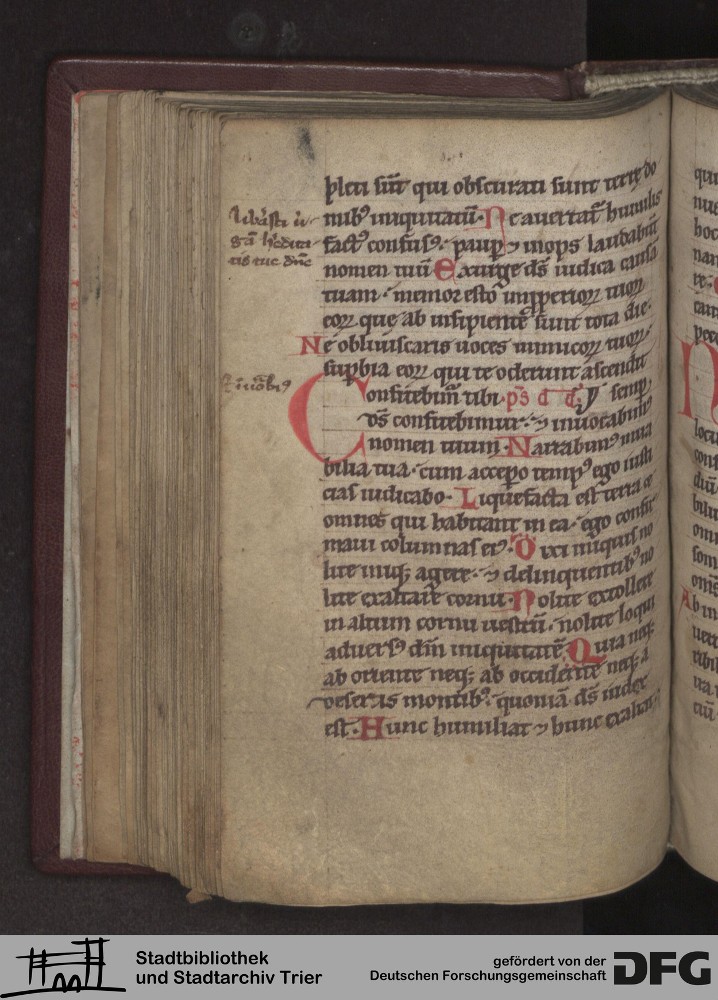 pleti sūt qui obscurati sunt terrę do
mibꝰ iniquitatū· Ne auertat᷑ humilis
factꝰ confusꝰ· paup ⁊ inops laudabūt
nomen tuū Exurge ds̄ iudica causā
tuam· memor esto inpperioꝝ tuoꝝ
eoꝝ quę ab insipiente sunt tota die·
Ne obliuiscaris uoces inimicoꝝ tuoꝝ·
supbia eoꝝ qui te oderunt ascendit
Confitebim᷑ tibi· ps̄ semp
ds̄ confitebimur· ⁊ inuocabimꝰ
nomen tuum· Narrabimꝰ mira
bilia tua· cum accepo tempꝰ ego iusti
cias iudicabo· Liquefacta est terra ⁊
omnes qui habitant in ea· ego confir
maui columnas eiꝰ· Dixi iniquis no
lite iniq; agere· ⁊ delinquentibꝰ no
lite exaltare cornu· Nolite extollere
in altum cornu uestrū· nolite loqui
aduersꝰ dm̄ iniquitatē· Quia neq;
ab oriente neq; ab occidente neq; a
desertis montibꝰ· quoniā ds̄ iudex
est· Hunc humiliat ⁊ hunc exaltat
libasti ū
gā hedita
tis tue dn̄e
Stadtbibliothek
und Stadtarchiv Trier
gefördert von der
Deutschen Forschungsgemeinschaft
DFG